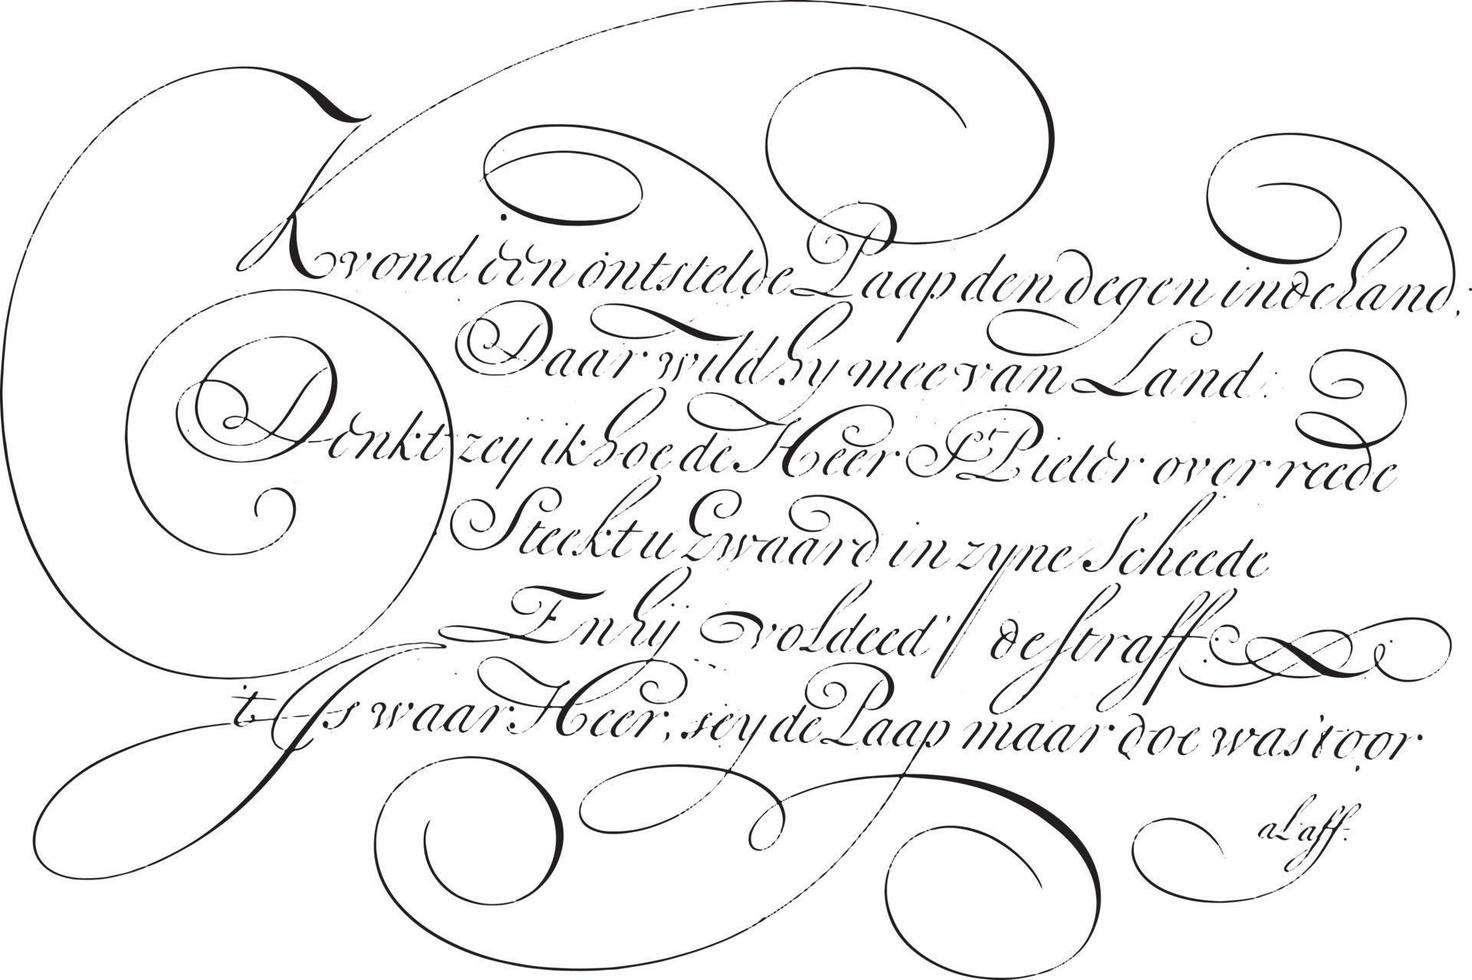 K vond één ontstelde Paap den degen in de hand;
Daar wild hy mee van Land:
Denkt zey ik hoe de Heer St. Pieter over reede
Steekt u Zwaard in zyne Scheede
En hij voldeed' de straff:
t Is waar Heer, sey de Paap maar doe was t oor
al aff: